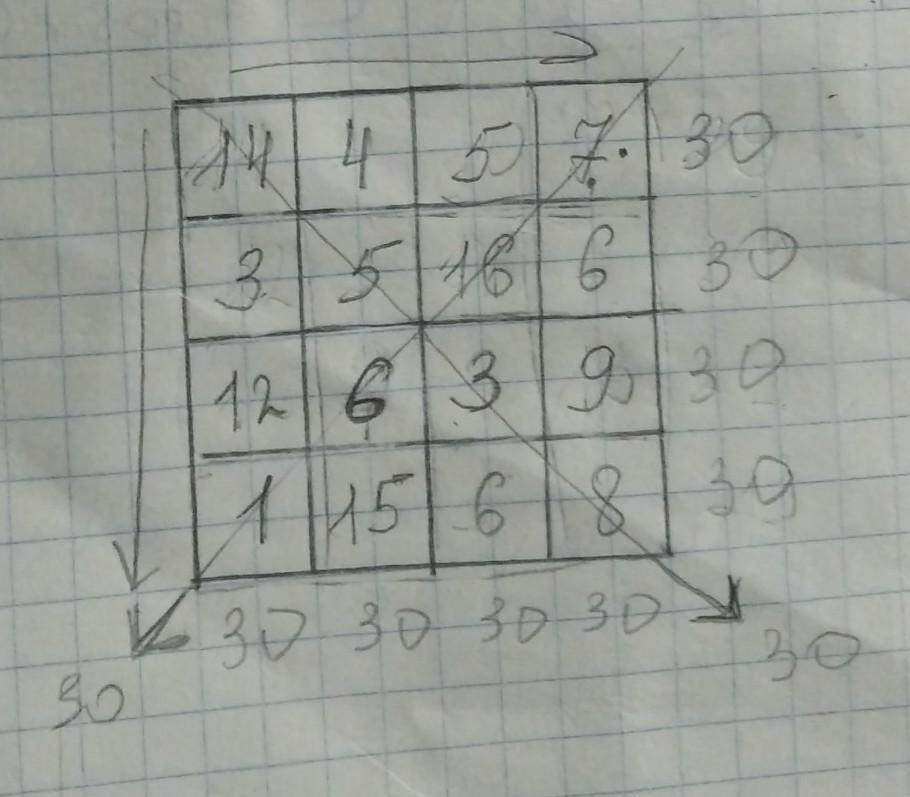 14 4 5 7. 30
3 5 16 6 30
12 6 3 9 30
1 15 6 8 30
30 30 30 30
30 30